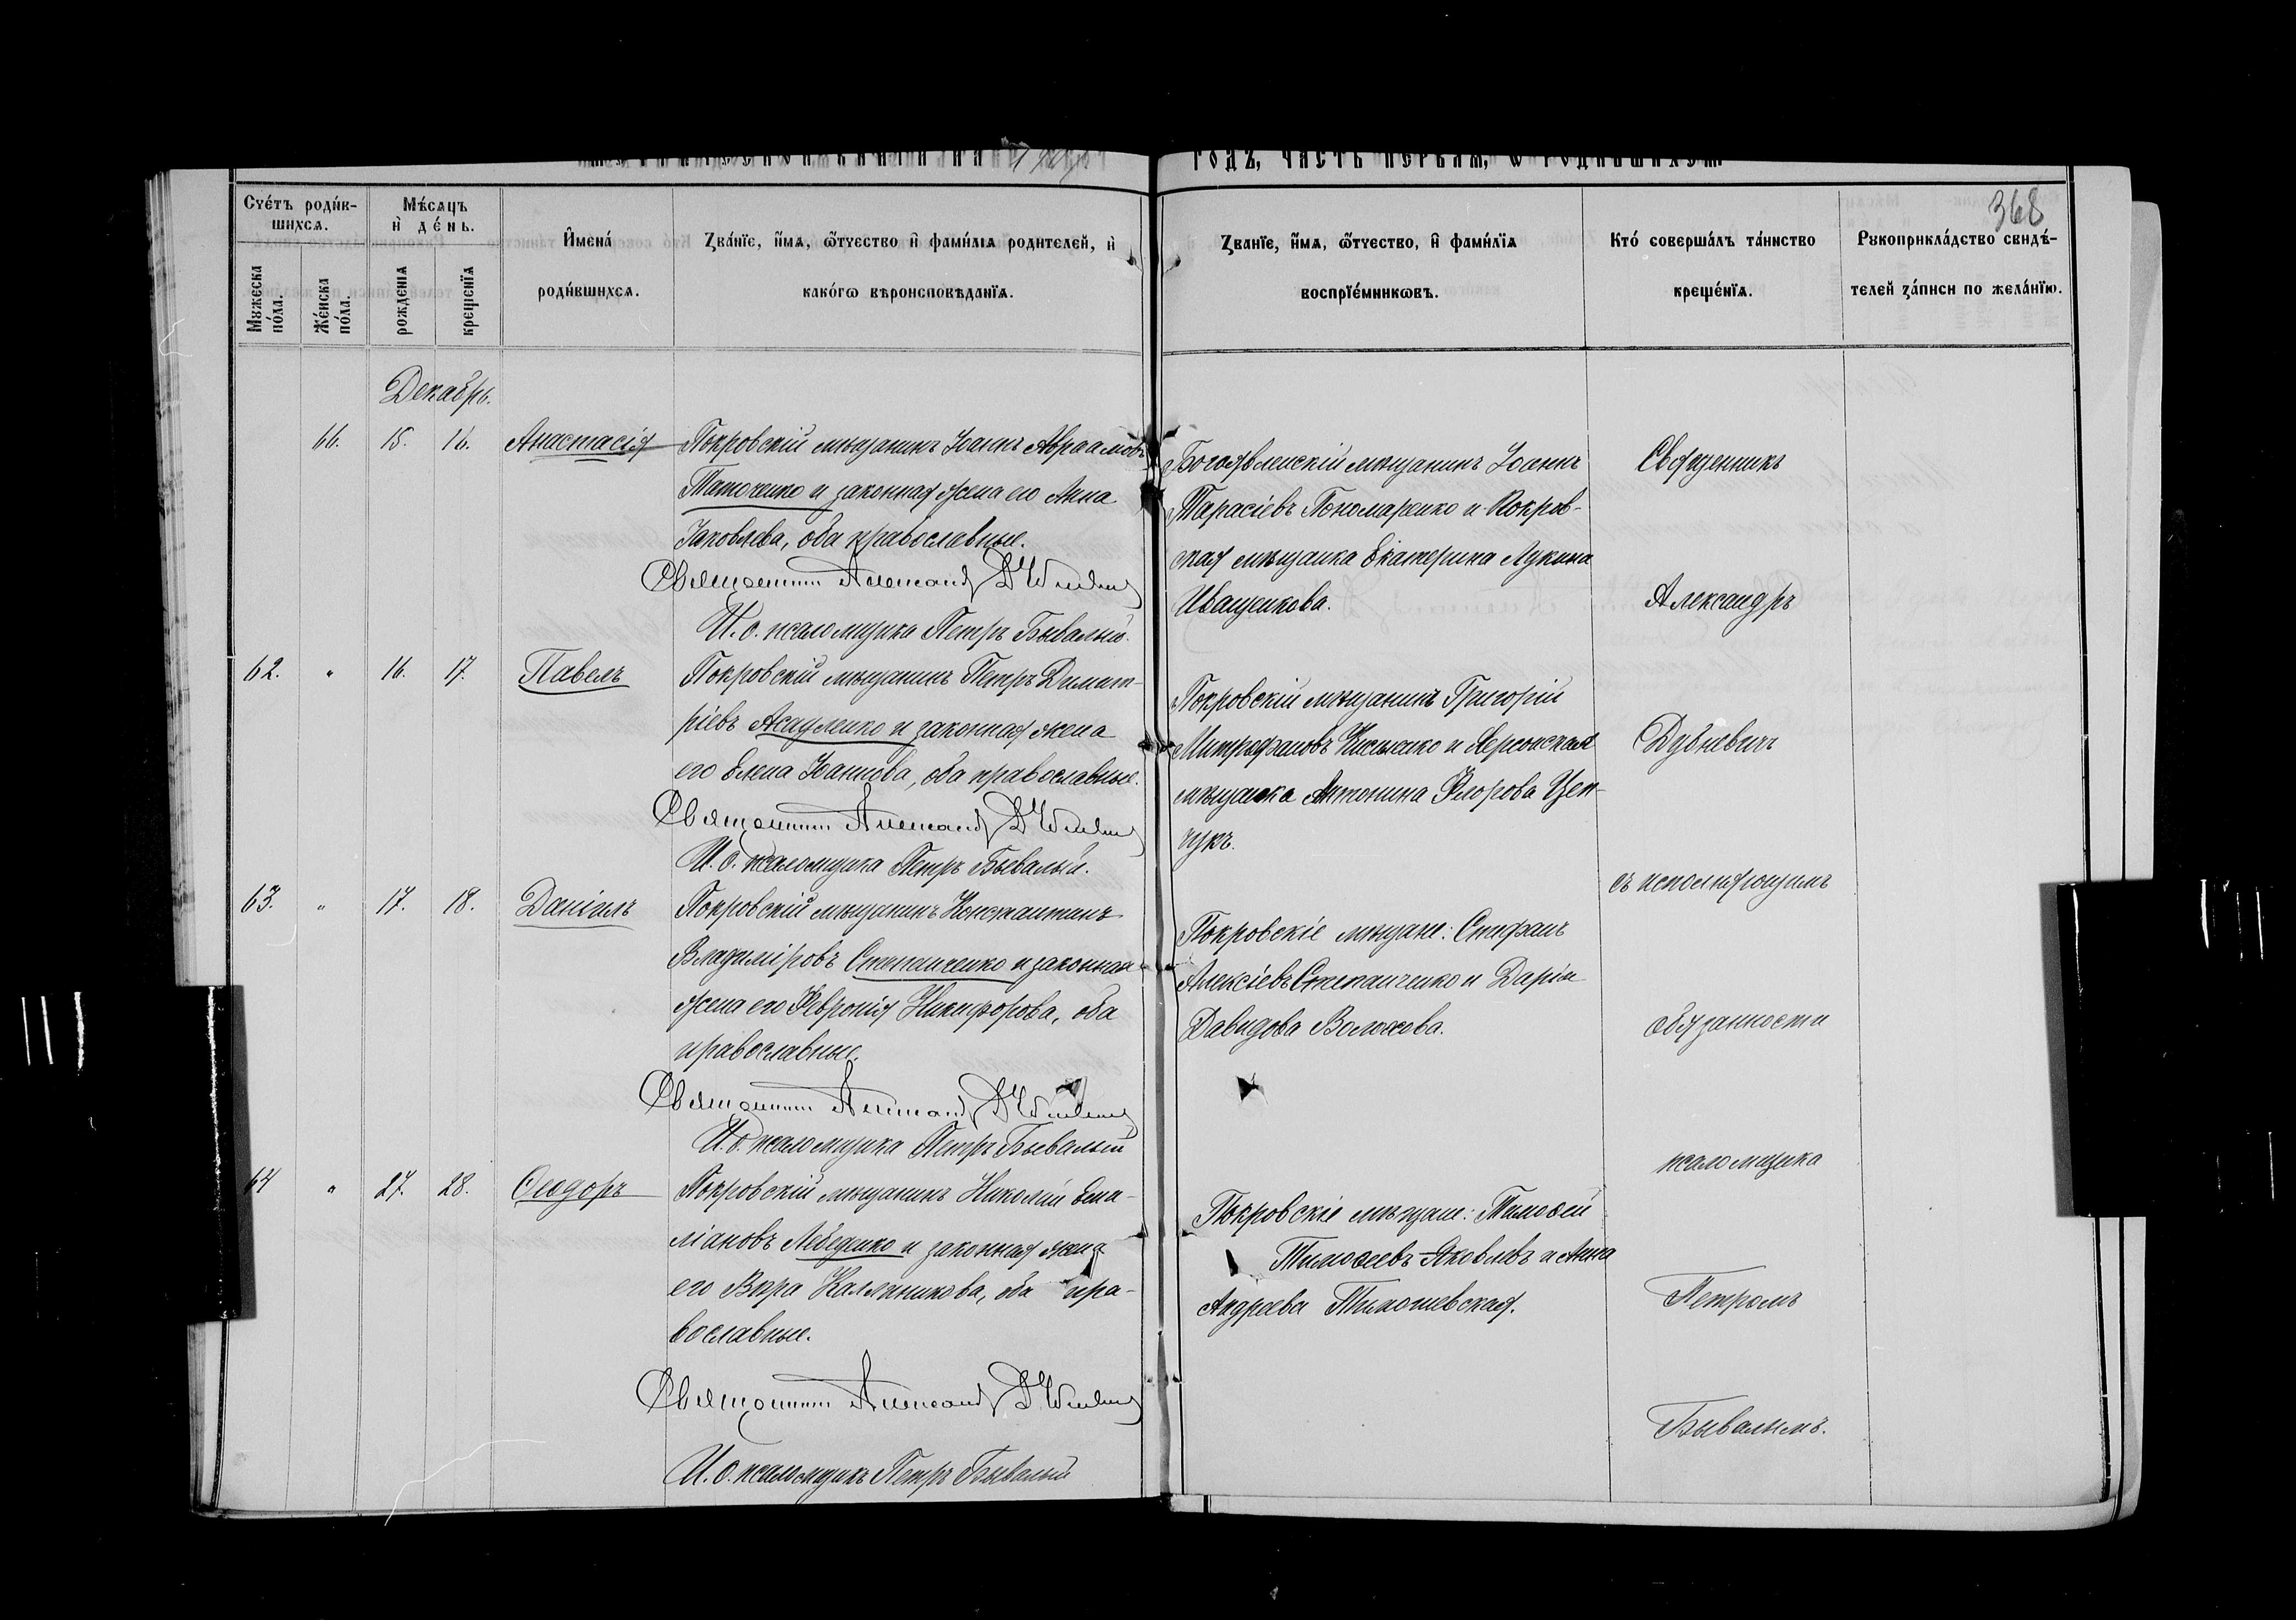 годъ, часть первая, ѡ родившихся
368
Счетъ родив-
шихся.
Мѣсяцъ
и день.
Мужеска пола.
Женска пола.
рожденія
крещенія
Имена
родившихся.
Званіе, имя, ѿчество и фамилія родителей, и
какогѡ вѣроисповѣданія.
Званіе, имя, ѿчество, и фамилія
воспріемникѡвъ.
Кто совершалъ таинство
крещенія.
Рукоприкладство свидѣ-
телей записи по желанію.
Декабрь.
66. 15. 16. Анастасія
Покровскій мѣщанинъ Іоаннъ Авраамовъ
и законная жена его Анна
Іаковлева, оба православные.
Священникъ Александръ
И. о. псаломщика Петръ Бывалый.
Богоявленскій мѣщанинъ Іоаннъ
Тарасіевъ Пономаренко и Покров-
ская мѣщанка Екатерина Лукина
Иващенкова.
62. " 16. 17. Павелъ
Покровскій мѣщанинъ Петръ Димит-
ріевъ и законная жена
его Елена Іоаннова, оба православные.
Священникъ Александръ
И. о. псаломщика Петръ Бывалый.
Покровскій мѣщанинъ Григорій
Митрофановъ и Херсонская
мѣщанка Антонина Флорова Цен-
чукъ.
63. " 17. 18. Даніилъ
Покровскій мѣщанинъ Константинъ
Владиміровъ Степанченко и законная
жена его Февронія Никифорова, оба
православные.
Священникъ Александръ
И. о. псаломщика Петръ Бывалый
Покровскіе мѣщане: Стефанъ
Алексіевъ Степанченко и Дарія
Давидова Волохова.
64 " 27. 28. Ѳеодоръ
Покровскій мѣщанинъ Николай Еми-
ліановъ Лебеденко и законная жена
его Вѣра Каллиникова, оба пра-
вославные.
Священникъ Александръ
И. о. псаломщикъ Петръ Бывалый
Покровскіе мѣщане: Тимоѳей
Тимоѳеевъ Яковлевъ и Анна
Андреева
Священникъ
Александръ
Дубневичъ
съ исполняющимъ
обязанности
псаломщика
Петромъ
Бывалымъ.